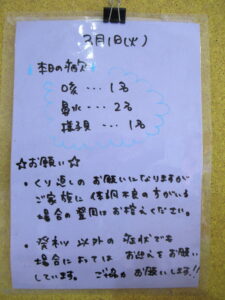 3月1日(火)
本日の病欠
咳 … 1名
鼻水 … 2名
様子見 … 1名
☆お願い☆
・くり返しのお願いになりますが
ご家族に体調不良の方がいる
場合の登園はお控えください。
・発熱以外の症状でも
場合によっては お迎えをお願い
しています。 ご協力お願いします!!